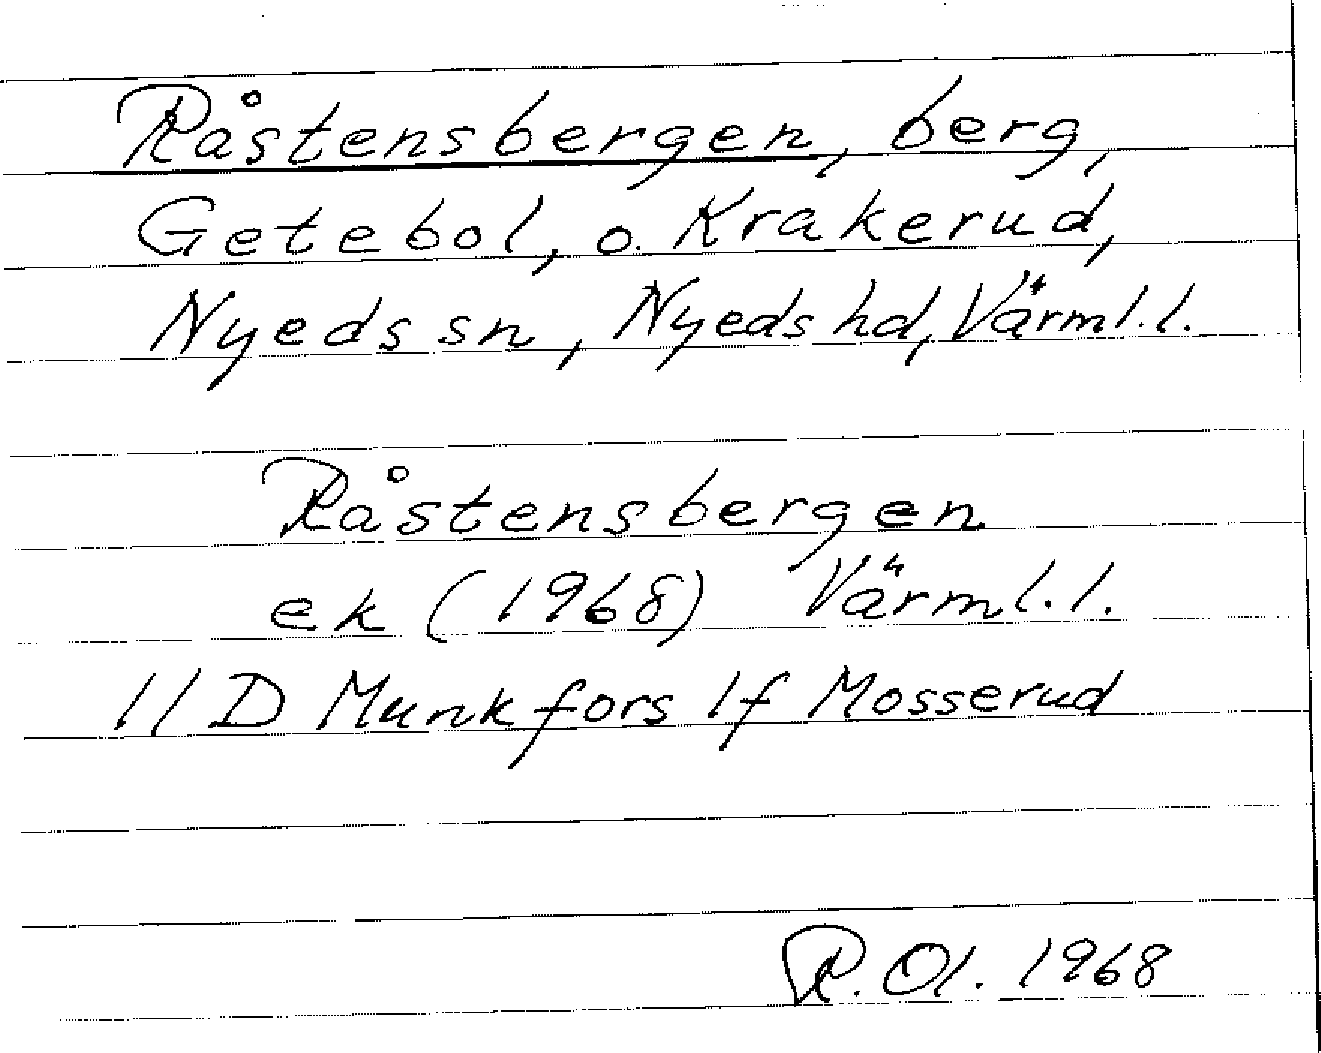 Råstensbergen, berg,
Getebol, o. Krakerud,
Nyeds sn, Nyeds hd, Värml. l.
Råstensbergen
ek (1968) Värml. l.
11 D Munkfors 1f Mosserud
R. Ol. 1968